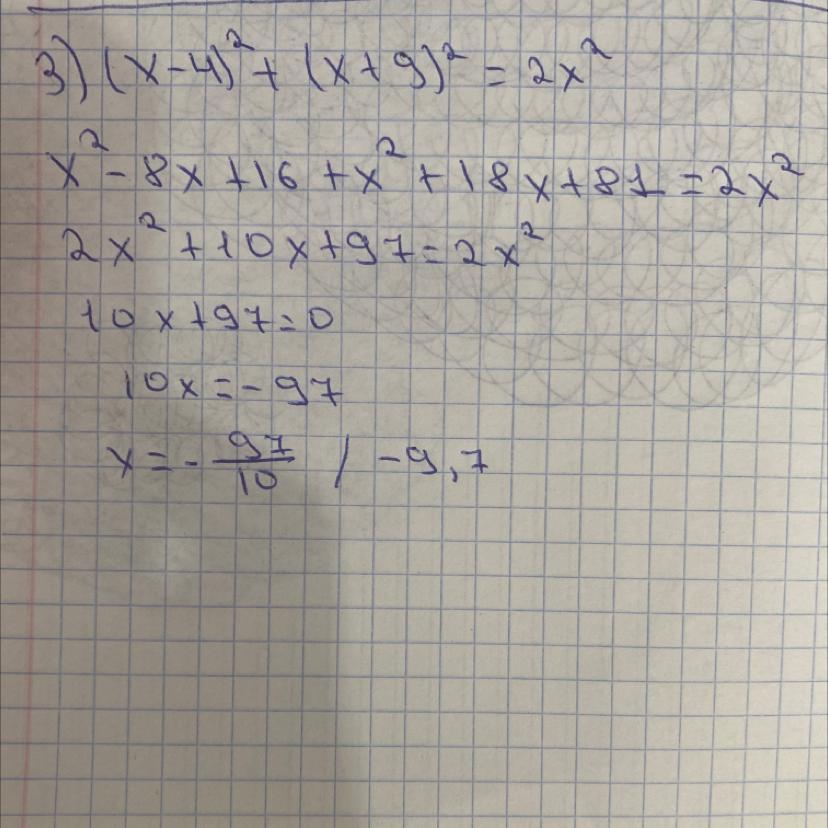 3) (x-4)² + (x+9)² = 2x²
x² - 8x + 16 + x² + 18x + 81 = 2x²
2x² + 10x + 97 = 2x²
10x + 97 = 0
10x = -97
x = - 97/10 / -9,7